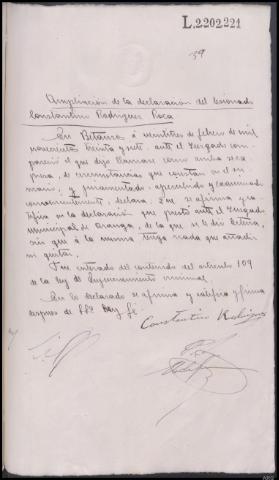 L.2202221
Ampliación de la declaracion del lesionado
Constantino Rodriguez Roca
En Betanzos á veintitres de febrero de mil
novecientos treinta y seis, ante el Juzgado com-
pareció el que dijo llamarse como arriba se ex-
presa, de circunstancias que constan en el su-
mario, y juramentado, apercibido y examinado
convenientemente, declara: Que se afirma y ra-
tifica en la declaración que prestó ante el Juzgado
municipal de Aranga, de la que se le dió lectura,
sin que á la misma tenga nada que añadir
ni quitar.
Fué enterado del contenido del articulo 109
de la ley de Enjuiciamiento criminal.
En lo declarado se afirma y ratifica y firma
despues de Sª Sª doy fé.
Constantino Rodriguez